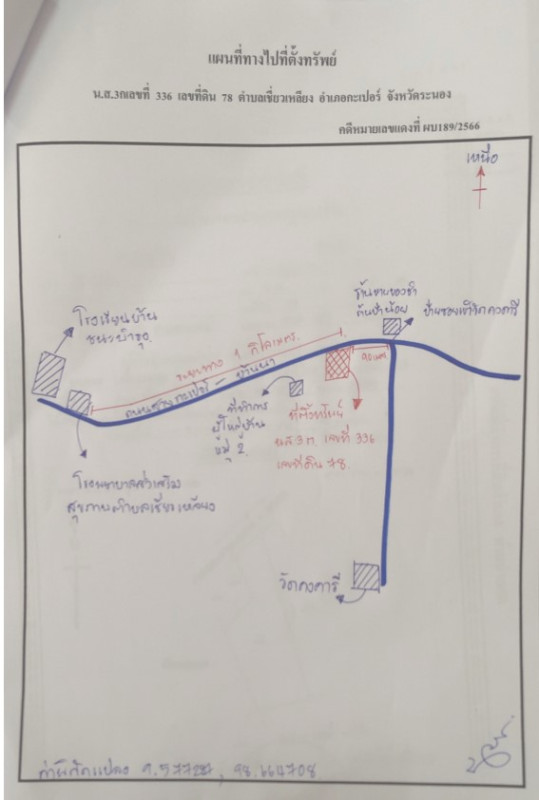 แผนที่ทางไปที่ตั้งทรัพย์
น.ส.3กเลขที่ 336 เลขที่ดิน 78 ตำบลเชี่ยวเหลียง อำเภอกะเปอร์ จังหวัดระนอง
คดีหมายเลขแดงที่ ผบ189/2566
เหนือ
โรงเรียนบ้าน
ระยะทาง 1 กิโลเมตร
ร้านขายของชำ
90 เมตร
ถนนสายกะเปอร์ - บ้านนา
ที่ทำการ
ผู้ใหญ่บ้าน
หมู่ 2
ที่ตั้งทรัพย์
น.ส.3ก เลขที่ 336
เลขที่ดิน 78
โรงพยาบาลส่งเสริม
สุขภาพตำบลเชี่ยวเหลียง
วัดคงคารี
ค่าพิกัดแปลง